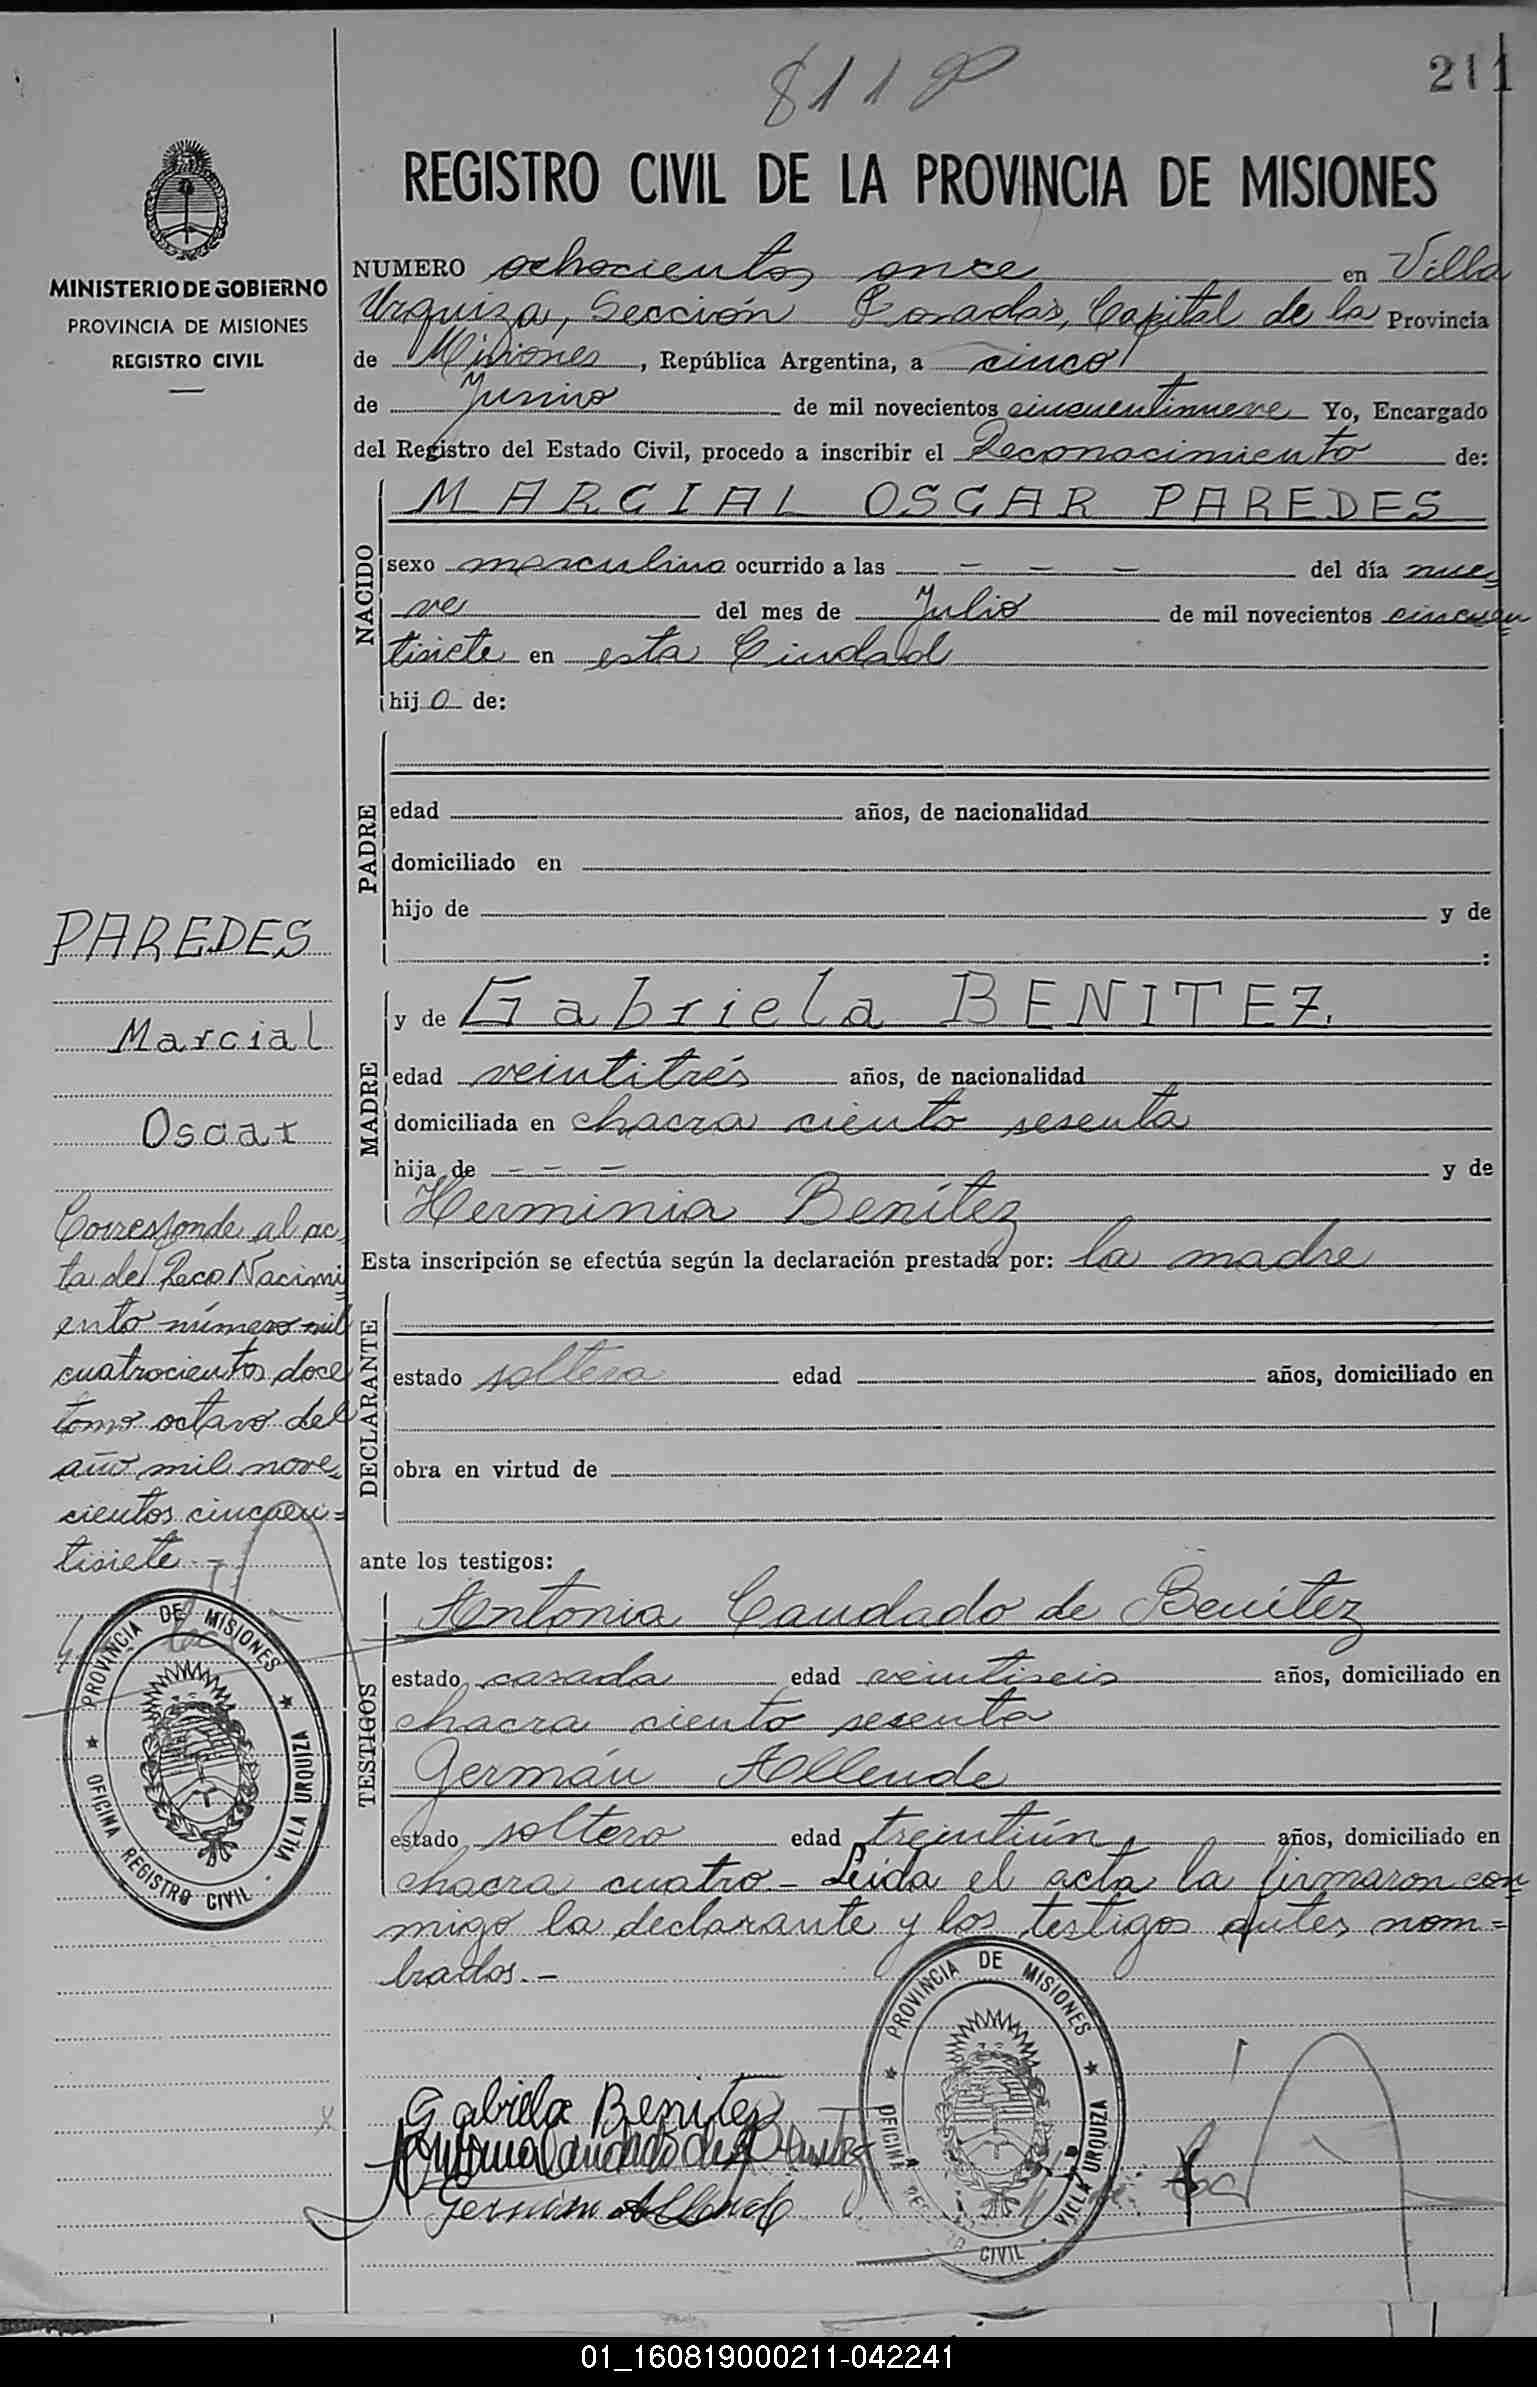 811
211
REGISTRO CIVIL DE LA PROVINCIA DE MISIONES
MINISTERIO DE GOBIERNO
PROVINCIA DE MISIONES
REGISTRO CIVIL
NUMERO ochocientos once en Villa
Urquiza, Sección Posadas, Capital de la Provincia
de Misiones, República Argentina, a cinco
de Junio de mil novecientos cincuentinueve Yo, Encargado
del Registro del Estado Civil, procedo a inscribir el Reconocimiento de:
NACIDO
MARCIAL OSCAR PAREDES
sexo masculino ocurrido a las – – – del día nue=
ve del mes de Julio de mil novecientos cincuen
tisiete en esta Ciudad
hijo de:
PADRE
edad años, de nacionalidad
domiciliado en
hijo de y de
:
MADRE
y de Gabriela BENITEZ.
edad veintitrés años, de nacionalidad
domiciliada en chacra ciento sesenta
hija de – – – y de
Herminia Benítez
Esta inscripción se efectúa según la declaración prestada por: la madre
DECLARANTE
estado soltera edad años, domiciliado en
obra en virtud de
ante los testigos:
TESTIGOS
Antonia Caudado de Benítez
estado casada edad veintiseis años, domiciliado en
chacra ciento sesenta
Germán Allende
estado soltero edad treintiún años, domiciliado en
chacra cuatro.– Leída el acta la firmaron con
migo la declarante y los testigos antes nom=
brados.–
PAREDES
Marcial
Oscar
Corresponde al ac=
ta de Reco Nacimi=
ento número mil
cuatrocientos doce
tomo octavo del
año mil nove=
cientos cincuen=
tisiete –
PROVINCIA DE MISIONES
OFICINA REGISTRO CIVIL · VILLA URQUIZA
Gabriela Benitez
Antonia Caudado de Benitez
German Allende
PROVINCIA DE MISIONES
OFICINA REGISTRO CIVIL · VILLA URQUIZA
01_160819000211-042241